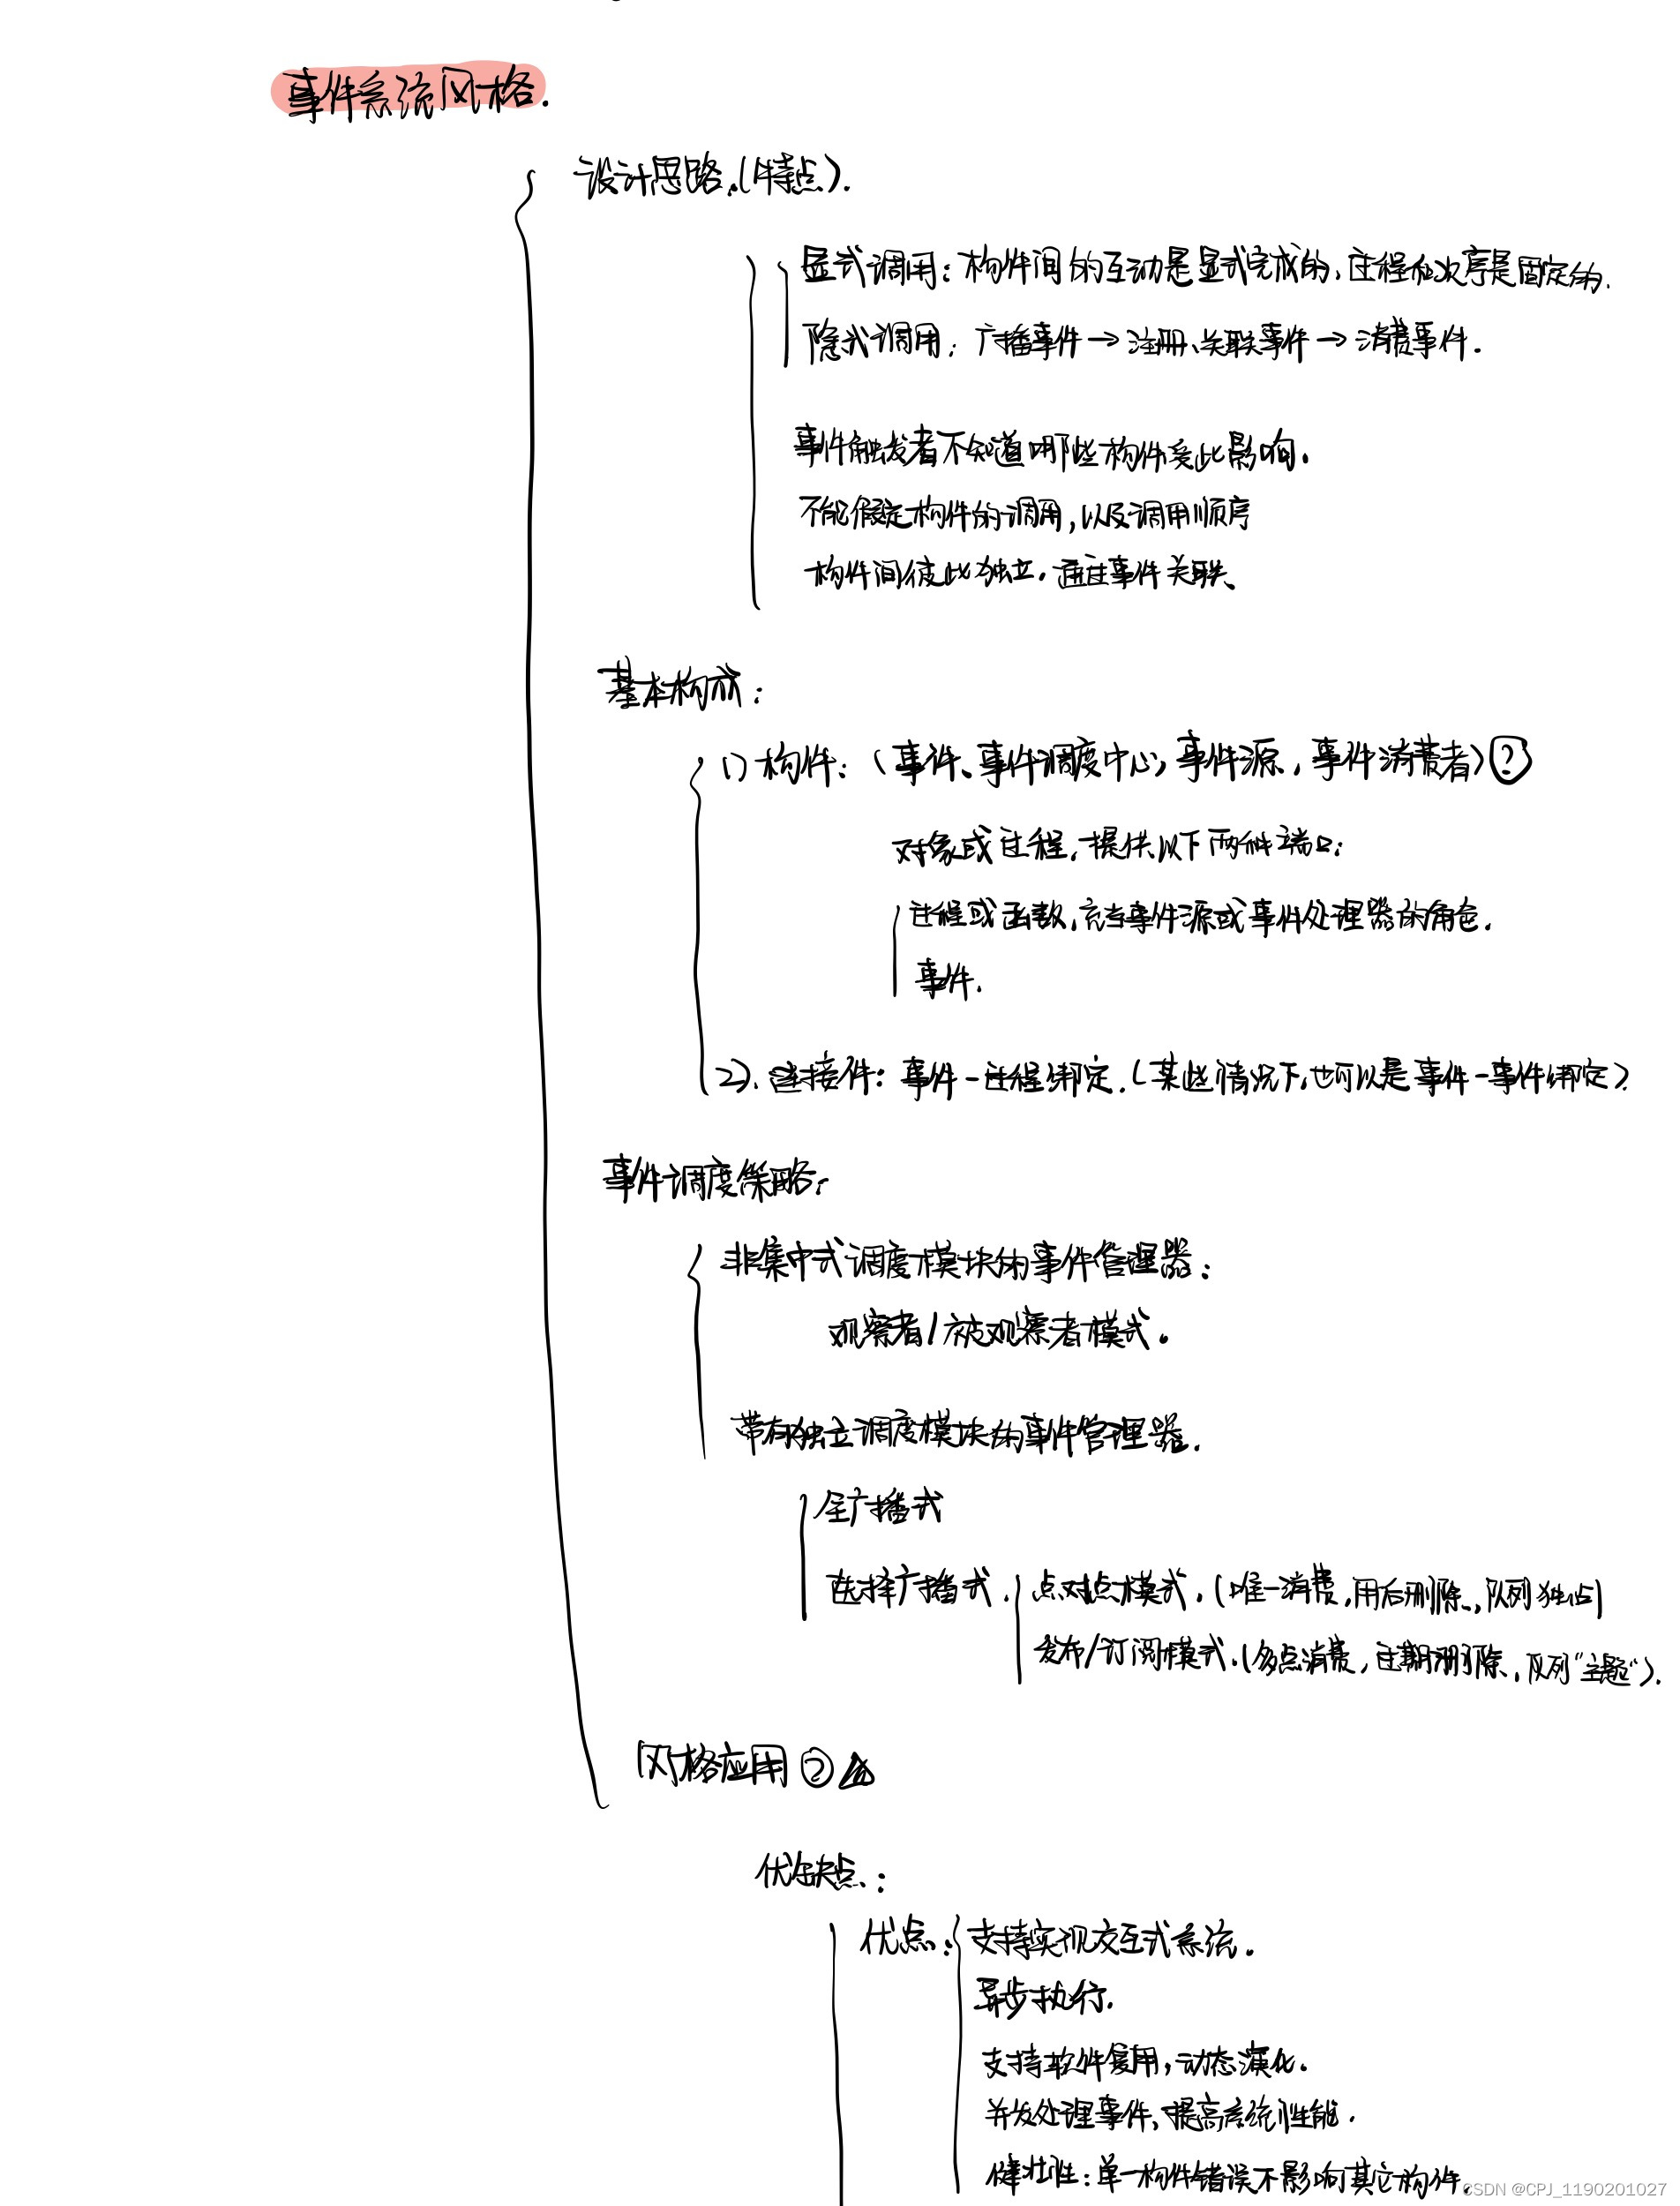 事件系统风格.
设计思路.(特点).
显式调用：构件间的互动是显式完成的、过程和次序是固定的.
隐式调用：广播事件→注册、关联事件→消费事件.
事件触发者不知道哪些构件受此影响.
不能假定构件的调用,以及调用顺序
构件间彼此独立.通过事件关联、
基本构成：
1) 构件：(事件、事件调度中心,事件源,事件消费者)?
对象或过程,提供以下两种端口:
过程或函数,充当事件源或事件处理器的角色.
事件.
2).连接件：事件-过程绑定.(某些情况下,也可以是事件-事件绑定)
事件调度策略:
非集中式调度模块的事件管理器:
观察者/被观察者模式.
带有独立调度模块的事件管理器.
全广播式
选择广播式.
点对点模式.(唯一消费,用后删除、队列独占)
发布/订阅模式.(多点消费,过期删除,队列"主题").
风格应用?
优缺点：
优点：支持实现交互式系统.
异步执行.
支持软件复用,动态演化.
并发处理事件、提高系统性能.
健壮性:单一构件错误不影响其它构件.
CSDN @CPJ_1190201027